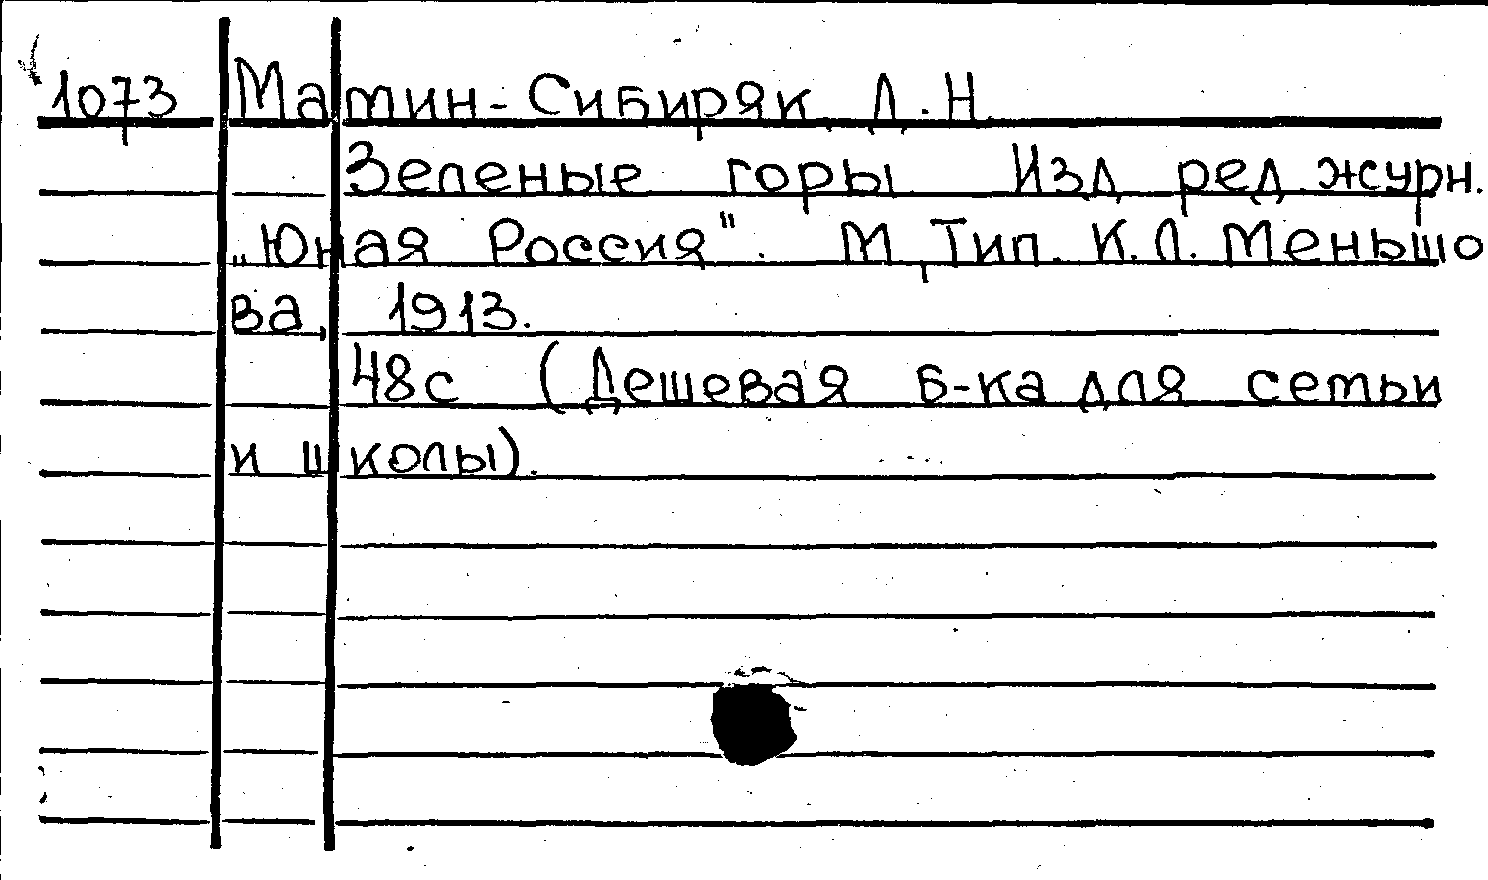 1073 Матин-Сибиряк Д.Н.
Зеленые горы Изд ред.журн.
„Юная Россия". М,Тип. К.Л. Меньшо
ва, 1913.
48с (Дешевая б-ка для сетьи
и школы).